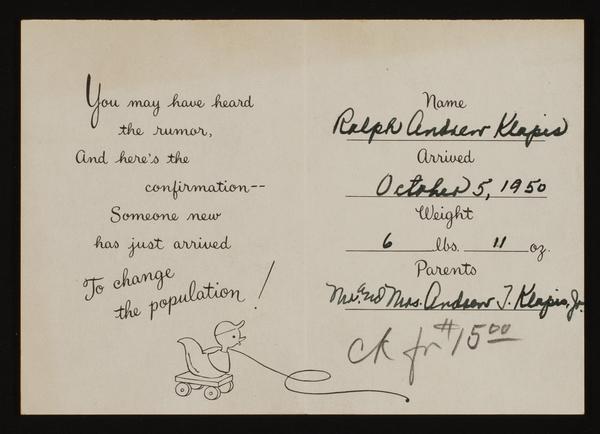 You may have heard
the rumor,
And here's the
confirmation--
Someone new
has just arrived
To change
the population!
Name
Ralph Andrew Klapis
Arrived
October 5, 1950
Weight
6 lbs. 11 oz.
Parents
Mr. and Mrs. Andrew T. Klapis, Jr.
ck for $15.00